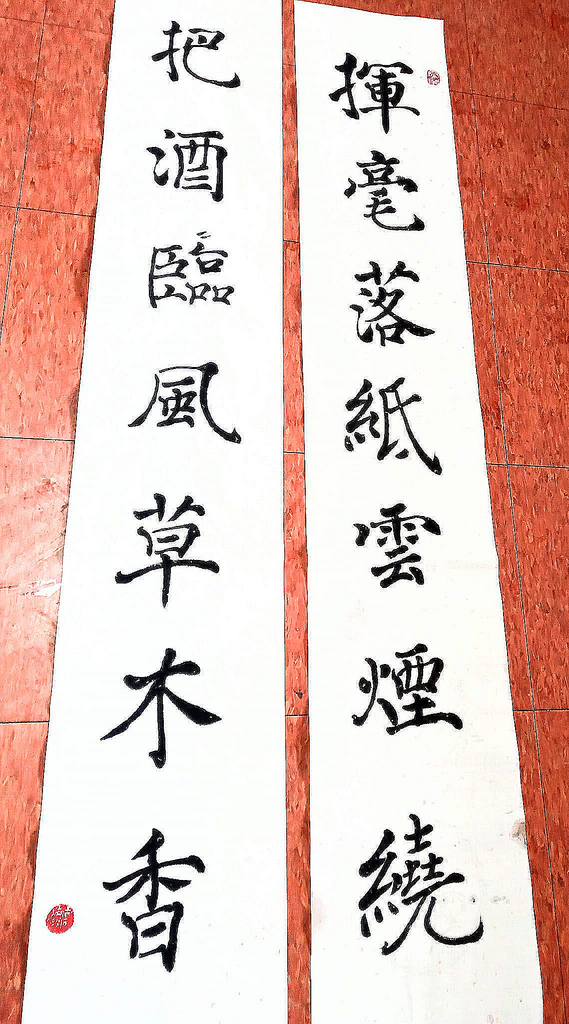 揮毫落紙雲煙繞
把酒臨風草木香